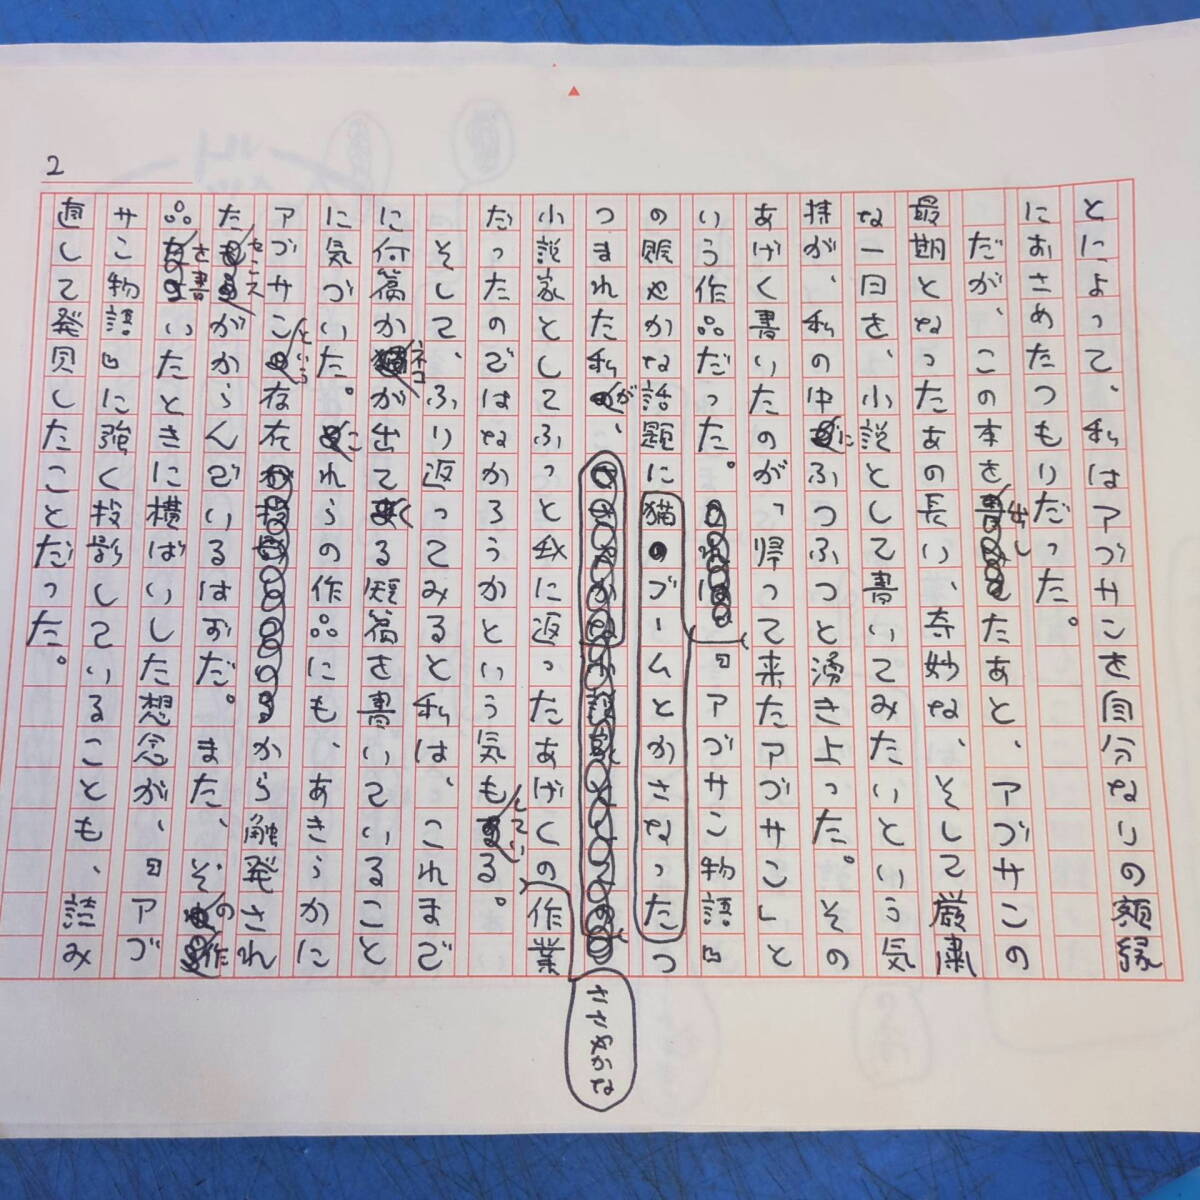 2
とによって、私はアヅサコを自分なりの額縁
におさめたつもりだった。
だが、この本を出したあと、アヅサコの
最期となったあの長い、奇妙な、そして厳粛
な一日を、小説として書いてみたいという気
持が、私の中にふつふつと湧き上った。その
あげく書いたのが「帰って来たアヅサコ」と
いう作品だった。『アヅサコ物語』
の賑やかな話題に猫のブームとかさなったつ
つまれた私が、
小説家としてふっと我に返ったあげくの作業
ささやかな
だったのではなかろうかという気もしている。
そして、ふり返ってみると私は、これまで
に何篇かネコが出てくる短篇を書いていること
に気づいた。これらの作品にも、あきらかに
アヅサコという存在から触発され
たセンスがからんでいるはずだ。また、その作
品さ書いたときに横ばいした想念が、『アヅ
サコ物語』に強く投影していることも、読み
直して発見したことだった。